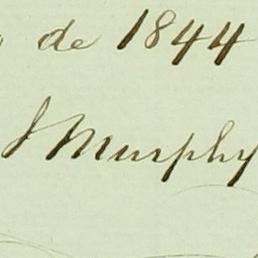 de 1844
J Murphy